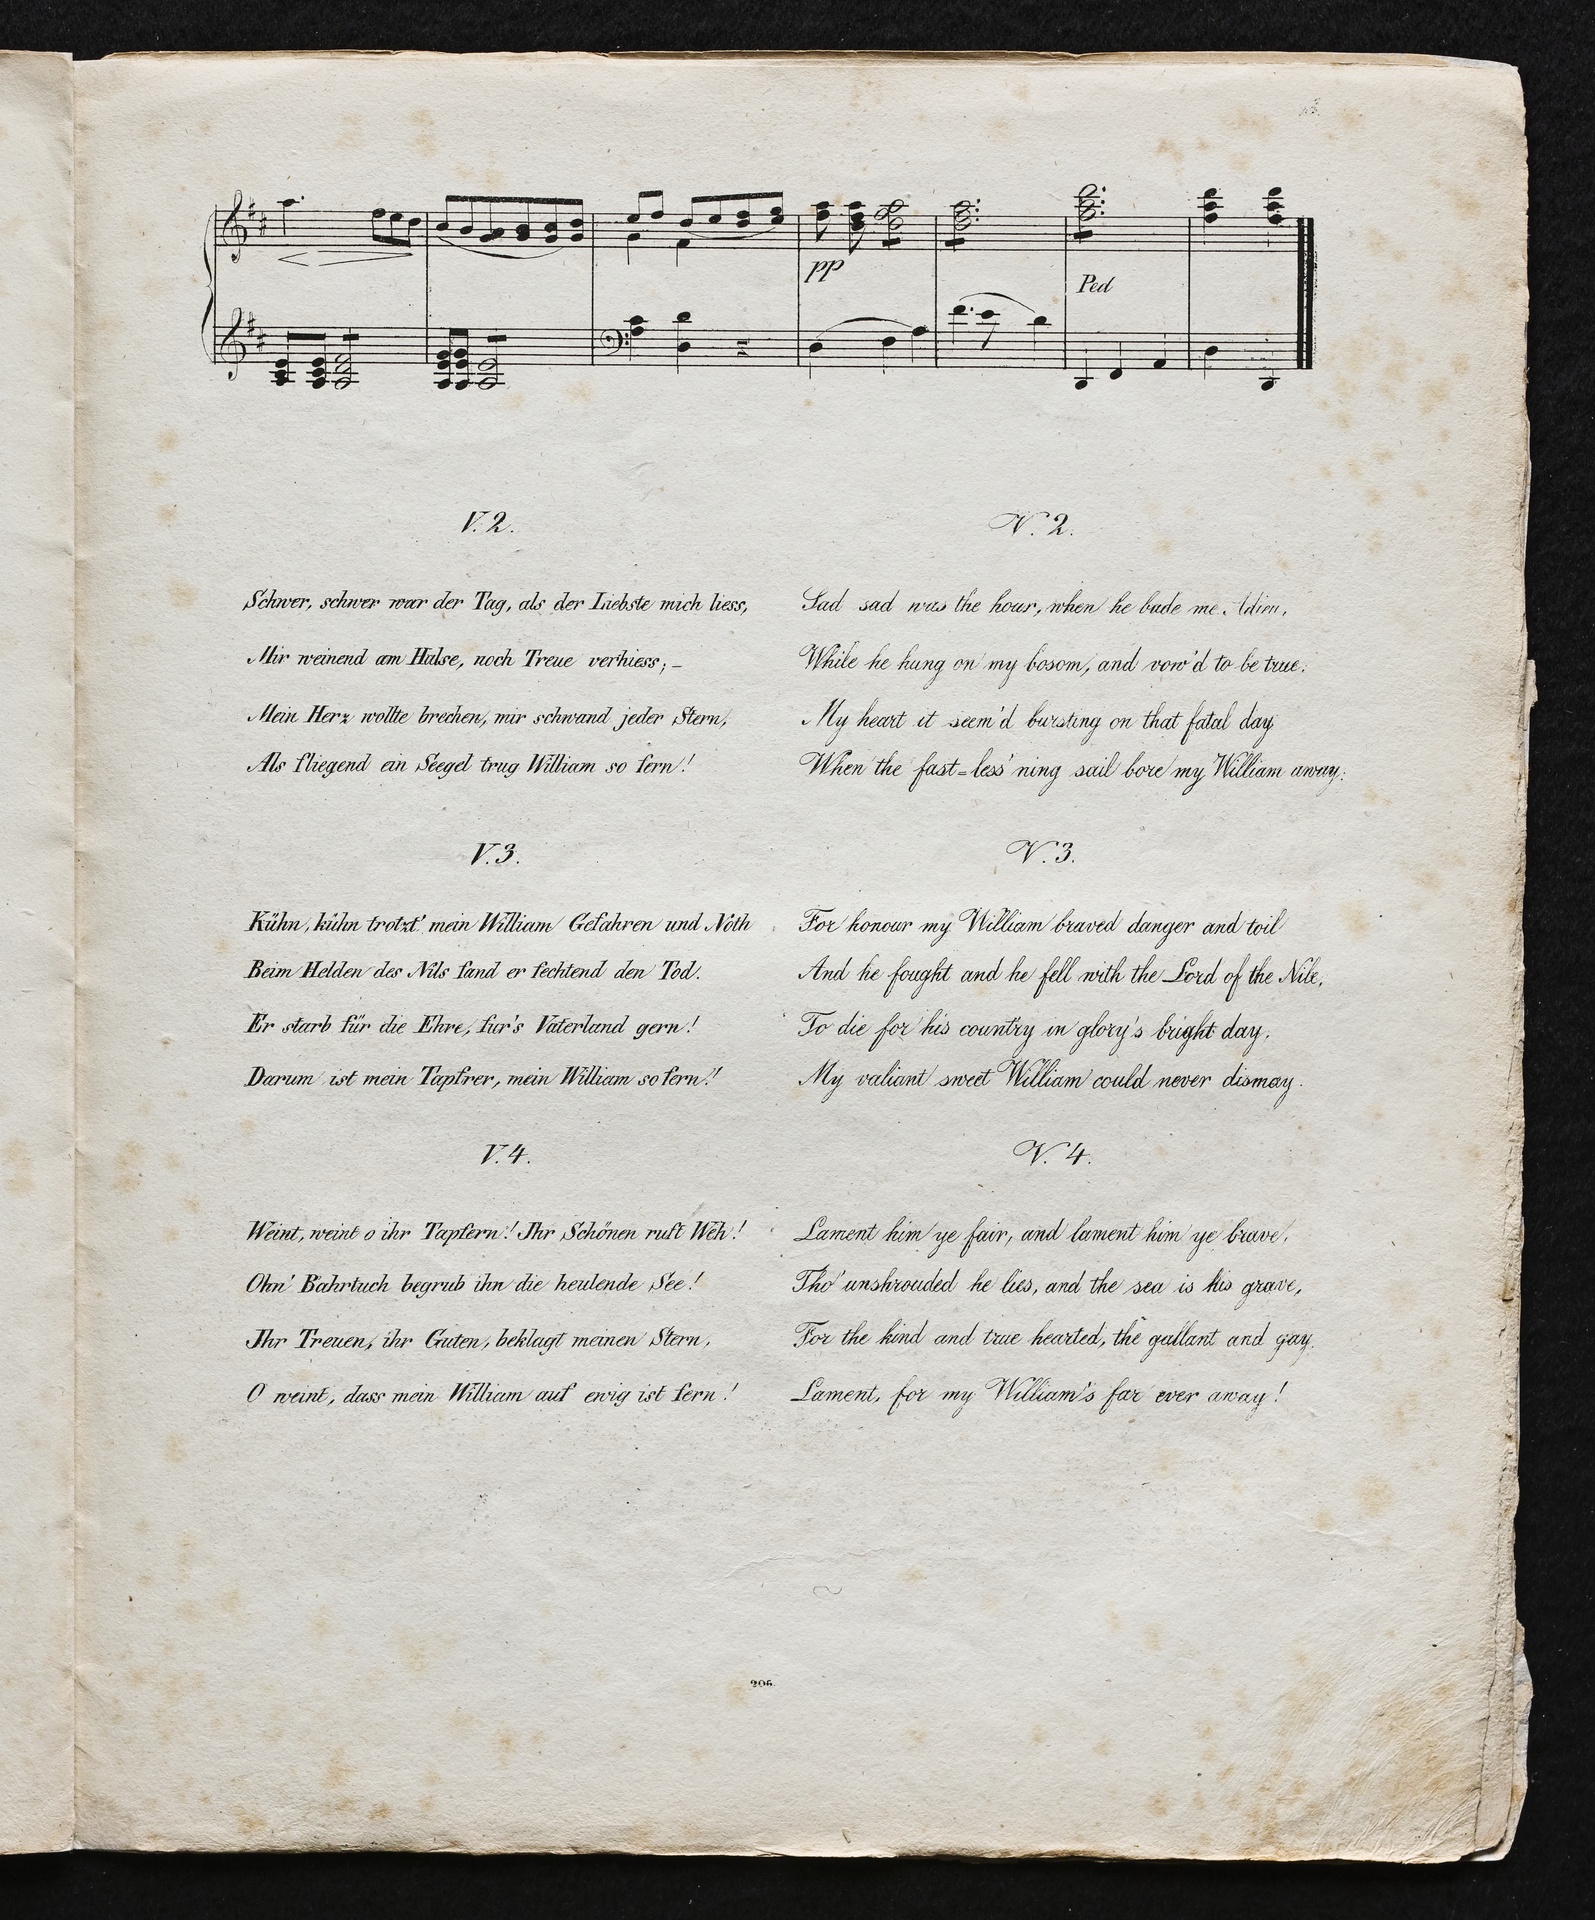 3
pp
Ped
V. 2.
Schwer, schwer war der Tag, als der Liebste mich liess,
Mir weinend am Halse, noch Treue verhiess; –
Mein Herz wollte brechen, mir schwand jeder Stern,
Als fliegend ein Seegel trug William so fern!
V. 3.
Kühn, kühn trotzt' mein William Gefahren und Noth
Beim Helden des Nils fand er fechtend den Tod.
Er starb für die Ehre, fur's Vaterland gern!
Darum ist mein Tapfrer, mein William so fern!!
V. 4.
Weint, weint o ihr Tapfern! Ihr Schönen ruft Weh!
Ohn' Bahrtuch begrub ihn die heulende See!
Ihr Treuen, ihr Guten, beklagt meinen Stern,
O weint, dass mein William auf ewig ist fern!
V. 2.
Sad sad was the hour, when he bade me Adieu,
While he hung on my bosom, and vow'd to be true.
My heart it seem'd bursting on that fatal day
When the fast=less'ning sail bore my William away.
V. 3.
For honour my William braved danger and toil
And he fought and he fell with the Lord of the Nile,
To die for his country in glory's bright day,
My valiant sweet William could never dismay.
V. 4.
Lament him ye fair, and lament him ye brave,
Tho' unshrouded he lies, and the sea is his grave,
For the kind and true hearted, the gallant and gay.
Lament, for my William's far ever away!
206.